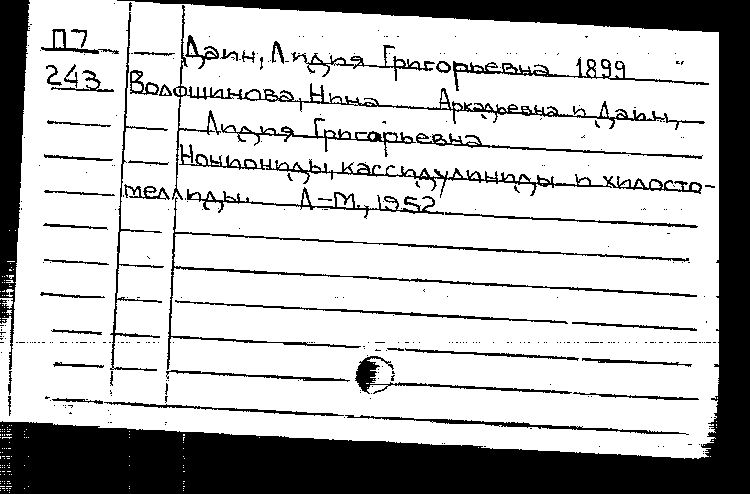 П7 Даин, Лидия Григорьевна 1899
243 Волошинова, Нина Аркадьевна и Даин,
Лидия Григорьевна
Нонпониды, кассидулиниды и хилосто-
меллиды. Л-М., 1952